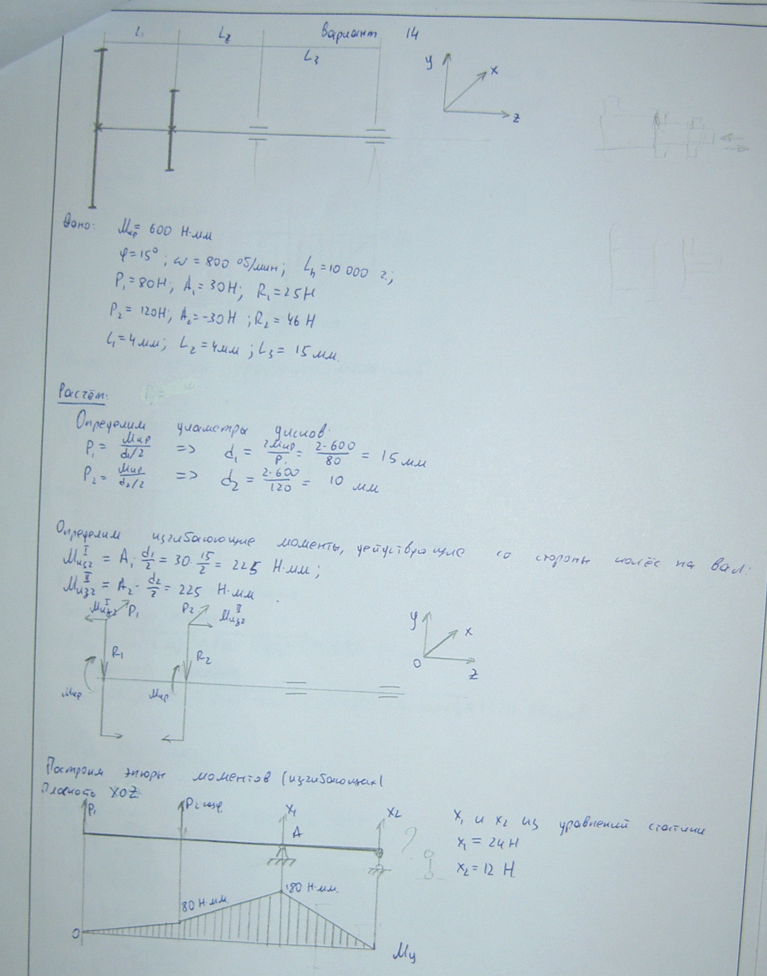 L₁ L₂ Вариант 14
L₃
y x z
Дано: Mкр = 600 Н·мм
φ=15°; ω = 800 об/мин; Lh = 10 000 ч;
P₁ = 80Н; A₁ = 30Н; R₁ = 25Н
P₂ = 120Н; A₂ = -30Н; R₂ = 46 Н
L₁=4мм; L₂ = 4мм; L₃ = 15 мм.
Расчёт:
Определим диаметры дисков:
P₁ = Mкр/(d₁/2) => d₁ = 2Mкр/P₁ = 2·600/80 = 15 мм
P₂ = Mкр/(d₂/2) => d₂ = 2·600/120 = 10 мм
Определим изгибающие моменты, действующие со стороны колёс на вал.
Mизг^I = A₁·d₁/2 = 30·15/2 = 225 Н·мм;
Mизг^II = A₂·d₂/2 = 225 Н·мм.
Mизг^I P₁ P₂ Mизг^II
y x 0 z
R₁ R₂
Mкр Mкр
Построим эпюры моментов (изгибающих)
Плоскость XOZ
P₁ P₂ x₁ x₂
A ?
x₁ и x₂ из уравнений статики
x₁ = 24Н
x₂ = 12 Н
80 Н·мм 180 Н·мм.
0
Mи